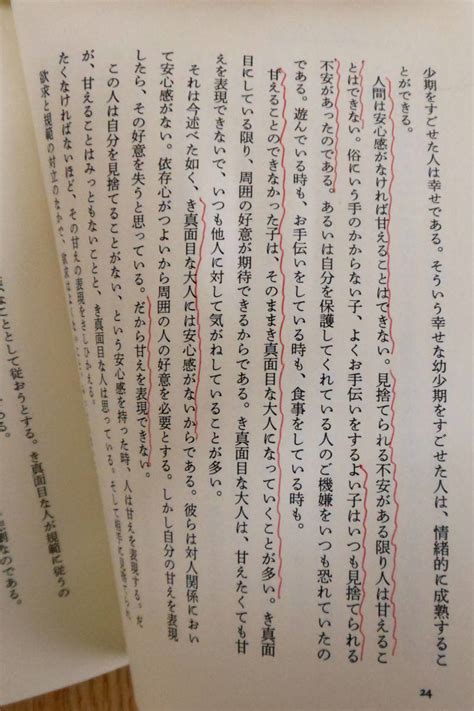 少期をすごせた人は幸せである。そういう幸せな幼少期をすごせた人は、情緒的に成熟するこ
とができる。
人間は安心感がなければ甘えることはできない。見捨てられる不安がある限り人は甘えるこ
とはできない。俗にいう手のかからない子、よくお手伝いをするよい子はいつも見捨てられる
不安があったのである。あるいは自分を保護してくれている人のご機嫌をいつも恐れていたの
である。遊んでいる時も、お手伝いをしている時も、食事をしている時も。
甘えることのできなかった子は、そのままき真面目な大人になっていくことが多い。き真面
目にしている限り、周囲の好意が期待できるからである。き真面目な大人は、甘えたくても甘
えを表現できないで、いつも他人に対して気がねしていることが多い。
それは今述べた如く、き真面目な大人には安心感がないからである。彼らは対人関係におい
て安心感がない。依存心がつよいから周囲の人の好意を必要とする。しかし自分の甘えを表現
したら、その好意を失うと思っている。だから甘えを表現できない。
この人は自分を見捨てることがない、という安心感を持った時、人は甘えを表現する。だ
が、甘えることはみっともないことと、き真面目な人は思っている。そして相手に
たくなければないほど、その甘えの表現をさしひかえる。
欲求と規範の対立のなかで、欲求は
なこととして従おうとする。き真面目な人が規範に従うの
なのである。
24